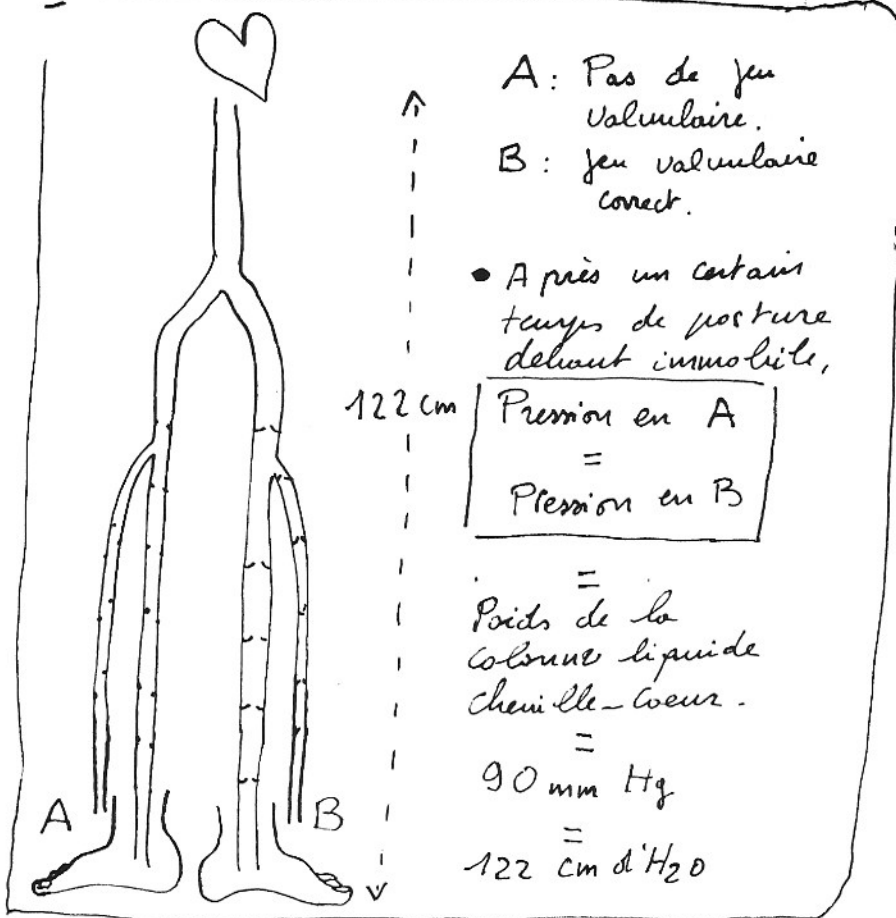 A : Pas de jeu
valvulaire.
B : jeu valvulaire
correct.
• Après un certain
temps de posture
debout immobile,
122 cm
Pression en A
=
Pression en B
=
Poids de la
colonne liquide
cheville-Coeur.
=
90 mm Hg
=
122 cm d'H2O
A
B